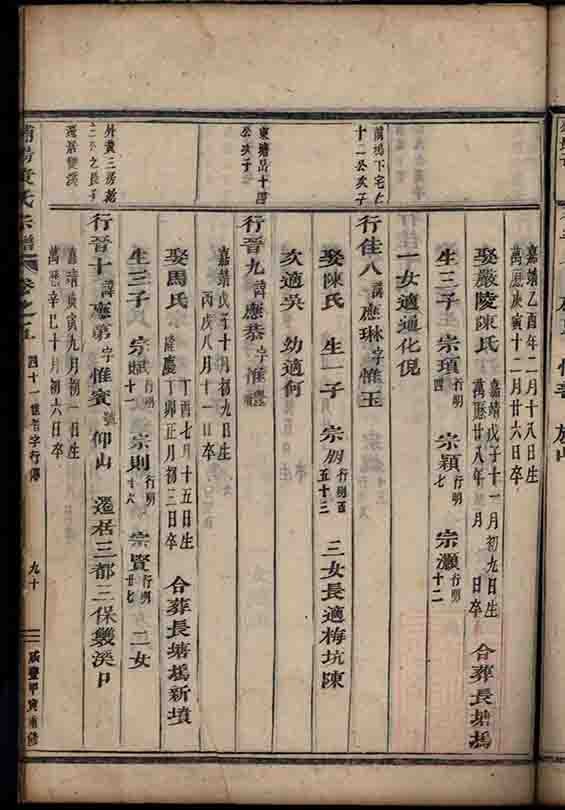 嘉靖乙酉年二月十八日生
萬曆庚寅十二月廿六日卒
娶嚴陵陳氏 嘉靖戊子十一月初九日生 萬曆廿八年 月 日卒 合葬長塘塢
生三子 宗頊 行明四 宗穎 行明七 宗灝 行明十二
一女適通化倪
前塢下宅七十二公次子
行佳八 諱應琳 字惟玉
娶陳氏 生一子 宗朋 行明百五十三 三女長適梅坑陳
次適吳 幼適何
東塘呂十四公次子
行晉九 諱應恭 字惟禮
嘉靖戊子十月初九日生
丙戌八月十一日卒
娶馬氏 丁酉七月十五日生 隆慶丁卯正月初三日卒 合葬長塘塢新墳
生三子 宗賦 行明十一 宗則 行明十六 宗賢 行明廿七 二女
外黃三房 三公之長子 遷居雙溪
行晉十 諱應第 字惟賓 號仰山 遷居三都三保雙溪口
嘉靖庚寅九月初一日生
萬曆辛巳十月初六日卒
黃氏宗譜 卷之五 四十一世 字行傳 九十 咸豐甲寅重修